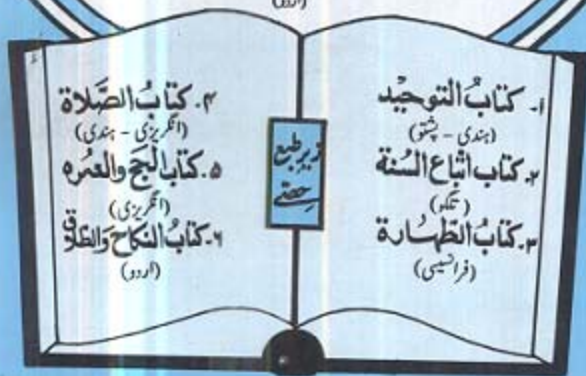 (اردو)
۱۔ کتابُ التوحید
(ہندی - پشتو)
۲۔ کتاب اتباع السُنة
(تلگو)
۳۔ کتابُ الطّہارة
(فرانسیسی)
زیرِ طبع
حصّے
۴۔ کتابُ الصَّلاة
(انگریزی - ہندی)
۵۔ کتابُ الحَج والعمُره
(انگریزی)
۶۔ کتابُ النکاح وَالطّلاق
(اردو)